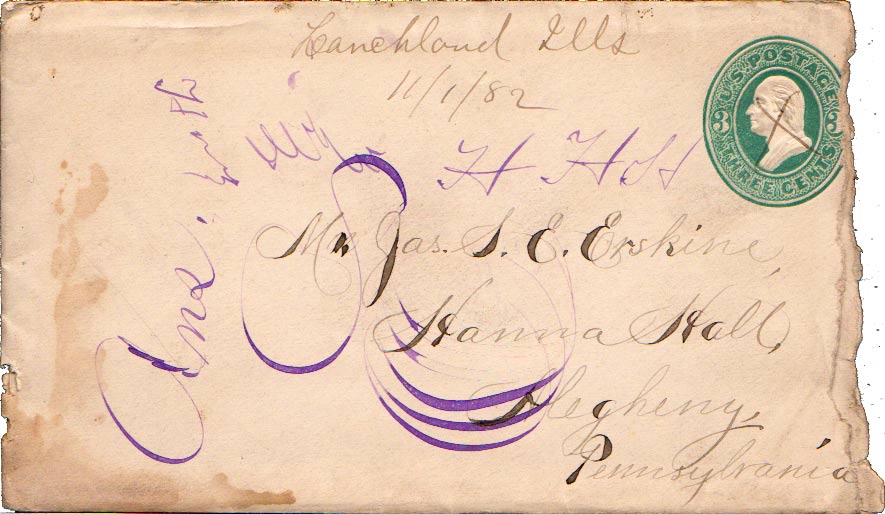 Hanchloud Ills
11/1/82
U.S. POSTAGE
3 3
THREE CENTS
H H H
Mr Jas. S. E. Erskine,
Hanna Hall,
Allegheny,
Pennsylvania
Ans.